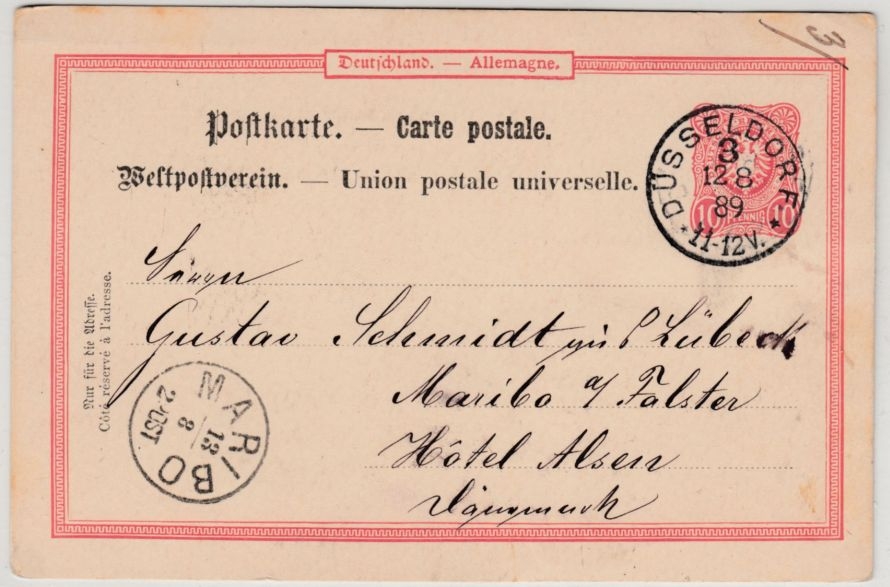 3
Deutschland. — Allemagne.
Postkarte. — Carte postale.
Weltpostverein. — Union postale universelle.
DÜSSELDORF
3
12 8
89
* 11-12V. *
10 PFENNIG 10
Herrn
Gustav Schmidt aus Lübeck
Maribo a/ Falster
Hôtel Alsen
Dänemark
Nur für die Adresse.
Côté réservé à l'adresse.
MARIBO
13/8
2 POST